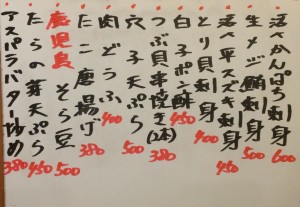 活〆かんぱち刺身 600
生メジ鮪刺身 500
活〆平スズキ刺身 450
とり貝刺身 400
白子ポン酢 450
つぶ貝串焼き(2本) 380
穴子天ぷら 500
肉どうふ 400
たこ唐揚げ 380
鹿児島 そら豆 500
たらの芽天ぷら 450
アスパラバター炒め 380